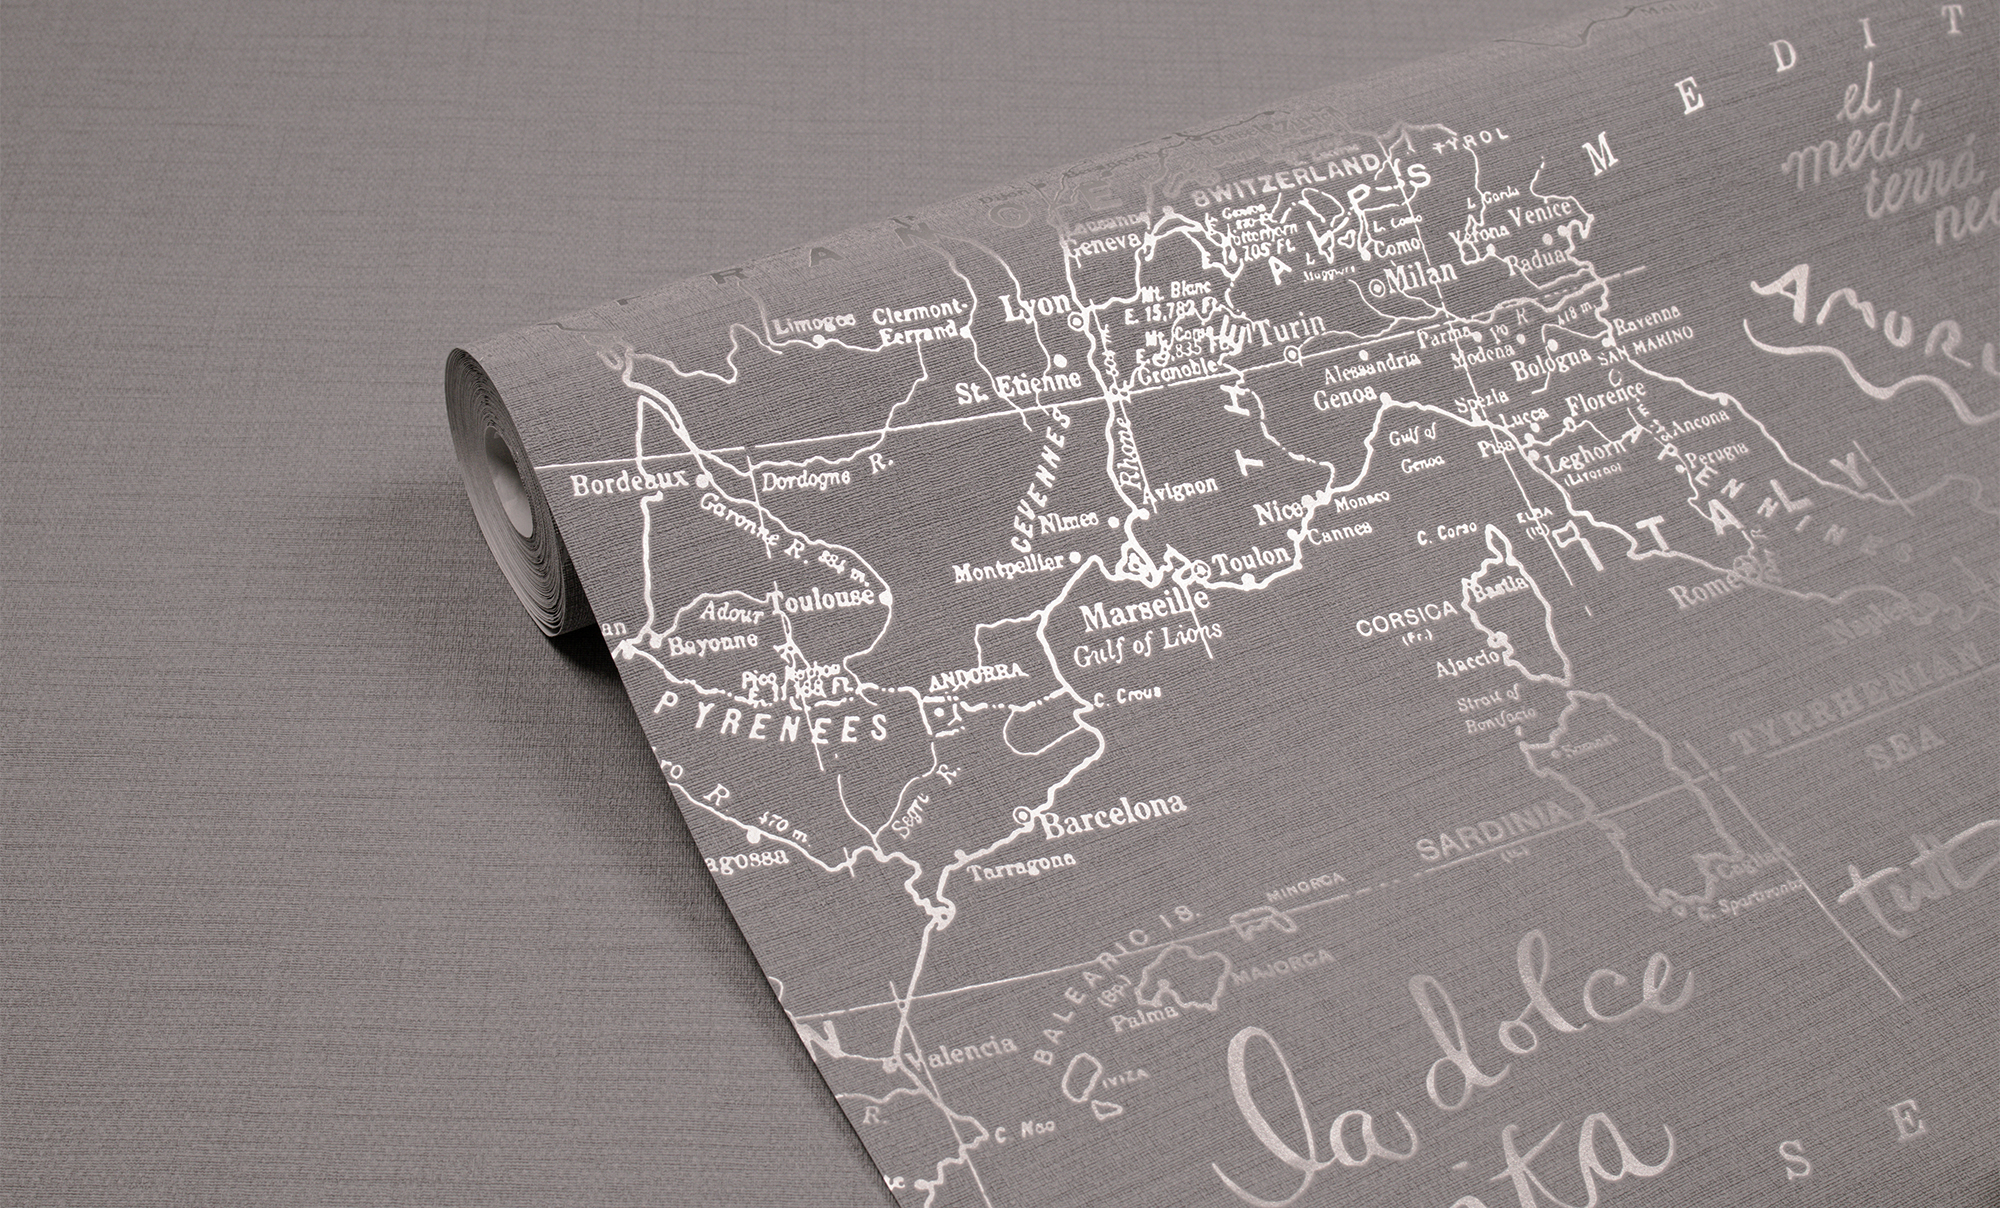 M E D I T
el
medi
terrá
neo
TYROL
SWITZERLAND
ALPS
Lausanne
Geneva
L. Como
Como
Milan
Verona
Venice
Limoges
Clermont-
Ferrand
Lyon
Mt. Blanc
E. 15,782 Ft.
Turin
Parma
Po R
418 m.
Ravenna
Modena
Bologna
SAN MARINO
Alessandria
Grenoble
St. Etienne
Genoa
Spezia
Lucca
Florence
Ancona
Pisa
Leghorn
(Livorno)
Perugia
Gulf of
Genoa
CEVENNES
Rhone
Bordeaux
Dordogne R.
Garonne R.
Avignon
Nimes
Nice
Monaco
Cannes
Montpellier
Toulon
Marseille
Gulf of Lions
C. Corso
ELBA
(It.)
ITALY
Rome
Adour
Toulouse
Bayonne
PYRENEES
ANDORRA
C. Creus
CORSICA
(Fr.)
Bastia
Ajaccio
Strait of
Bonifacio
Naples
TYRRHENIAN
SEA
ro R.
470 m.
agossa
Segre R.
Barcelona
Tarragona
SARDINIA
(It.)
C. Spartivento
MINORCA
BALEARIC IS.
(Sp.)
MAJORCA
Palma
IVIZA
Valencia
R.
C. Nao
la dolce
S E